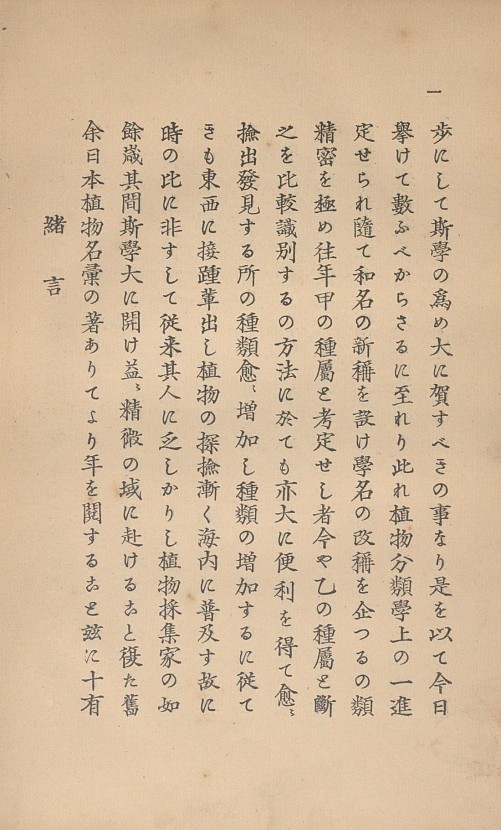 緒言
余日本植物名彙の著ありてより年を閲すること玆に十有
餘歳其間斯學大に開け益〻精微の域に赴けること復た舊
時の比に非すして従来其人に乏しかりし植物採集家の如
きも東西に接踵輩出し植物の探撿漸く海内に普及す故に
撿出發見する所の種類愈〻増加し種類の増加するに従て
之を比較識別するの方法に於ても亦大に便利を得て愈〻
精密を極め往年甲の種屬と考定せし者今や乙の種屬と斷
定せられ隨て和名の新稱を設け學名の改稱を企つるの類
擧けて數ふべからさるに至れり此れ植物分類學上の一進
歩にして斯學の爲め大に賀すべきの事なり是を以て今日
一